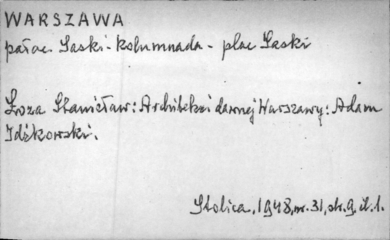 WARSZAWA
pałac Saski - kolumnada - plac Saski
Łoza Stanisław: Architekci dawnej Warszawy: Adam
Idźkowski.
Stolica, 1948, nr. 31, str. 9, il. 1.